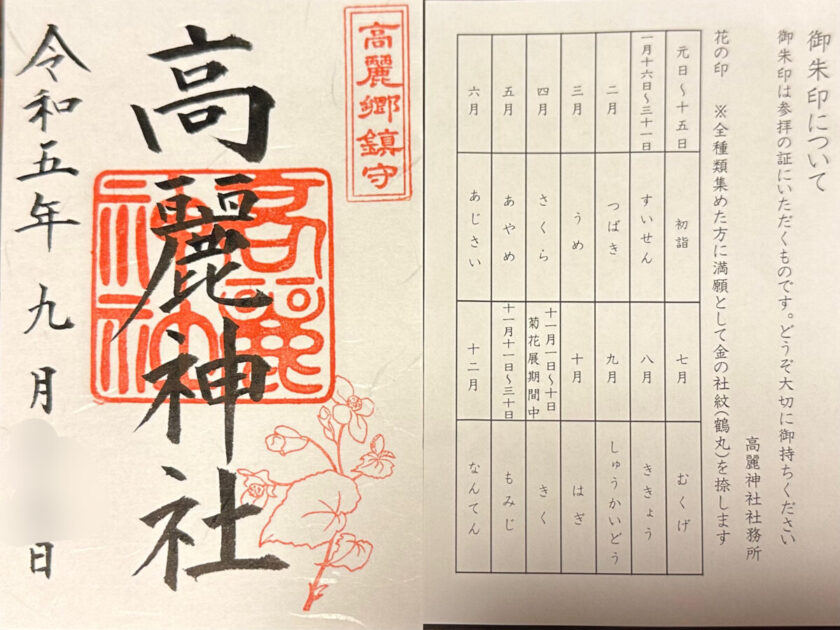 高麗郷鎮守
高麗神社
高麗
神社
令和五年 九月 日
御朱印について
御朱印は参拝の証にいただくものです。どうぞ大切に御持ちください
高麗神社社務所
花の印 ※全種類集めた方に満願として金の社紋(鶴丸)を捺します
元日〜十五日 初詣
一月十六日〜三十一日 すいせん
二月 つばき
三月 うめ
四月 さくら
五月 あやめ
六月 あじさい
七月 むくげ
八月 ききょう
九月 しゅうかいどう
十月 はぎ
十一月一日〜十日
菊花展期間中 きく
十一月十一日〜三十日 もみじ
十二月 なんてん